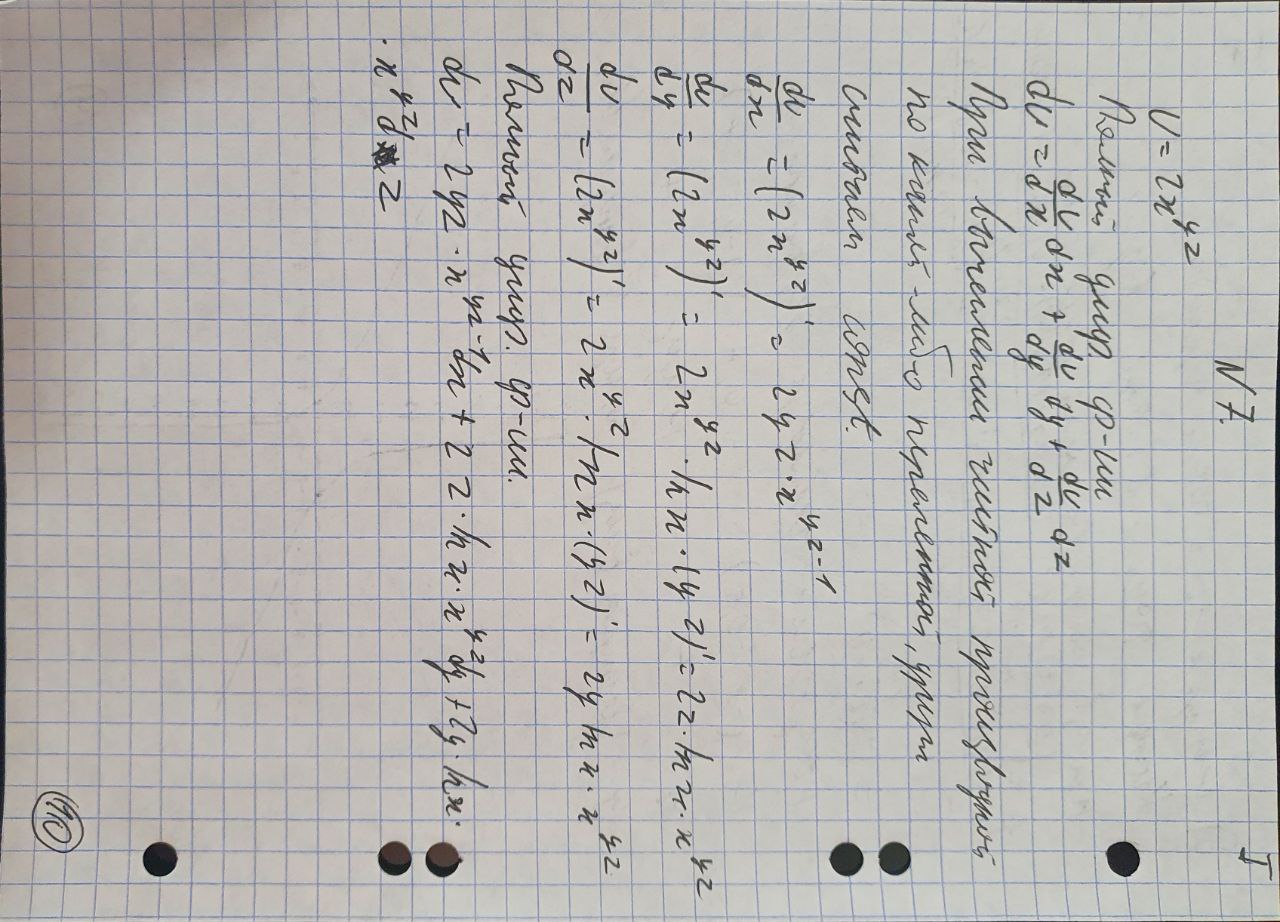 I
N 7.
U = 2x^{yz}
Полный диф. ф-ии
du = \frac{du}{dx} dx + \frac{du}{dy} dy + \frac{du}{dz} dz
При вычислении частной производной
по какой-либо переменной, другие
считаем const.
\frac{du}{dx} = (2x^{yz})' = 2yz · x^{yz-1}
\frac{du}{dy} = (2x^{yz})' = 2x^{yz} · ln x · (yz)' = 2z · ln x · x^{yz}
\frac{du}{dz} = (2x^{yz})' = 2x^{yz} · ln x · (yz)' = 2y ln x · x^{yz}
Полный диф. ф-ии.
du = 2yz · x^{yz-1} dx + 2z · ln x · x^{yz} dy + 2y · ln x ·
· x^{yz} d z
10